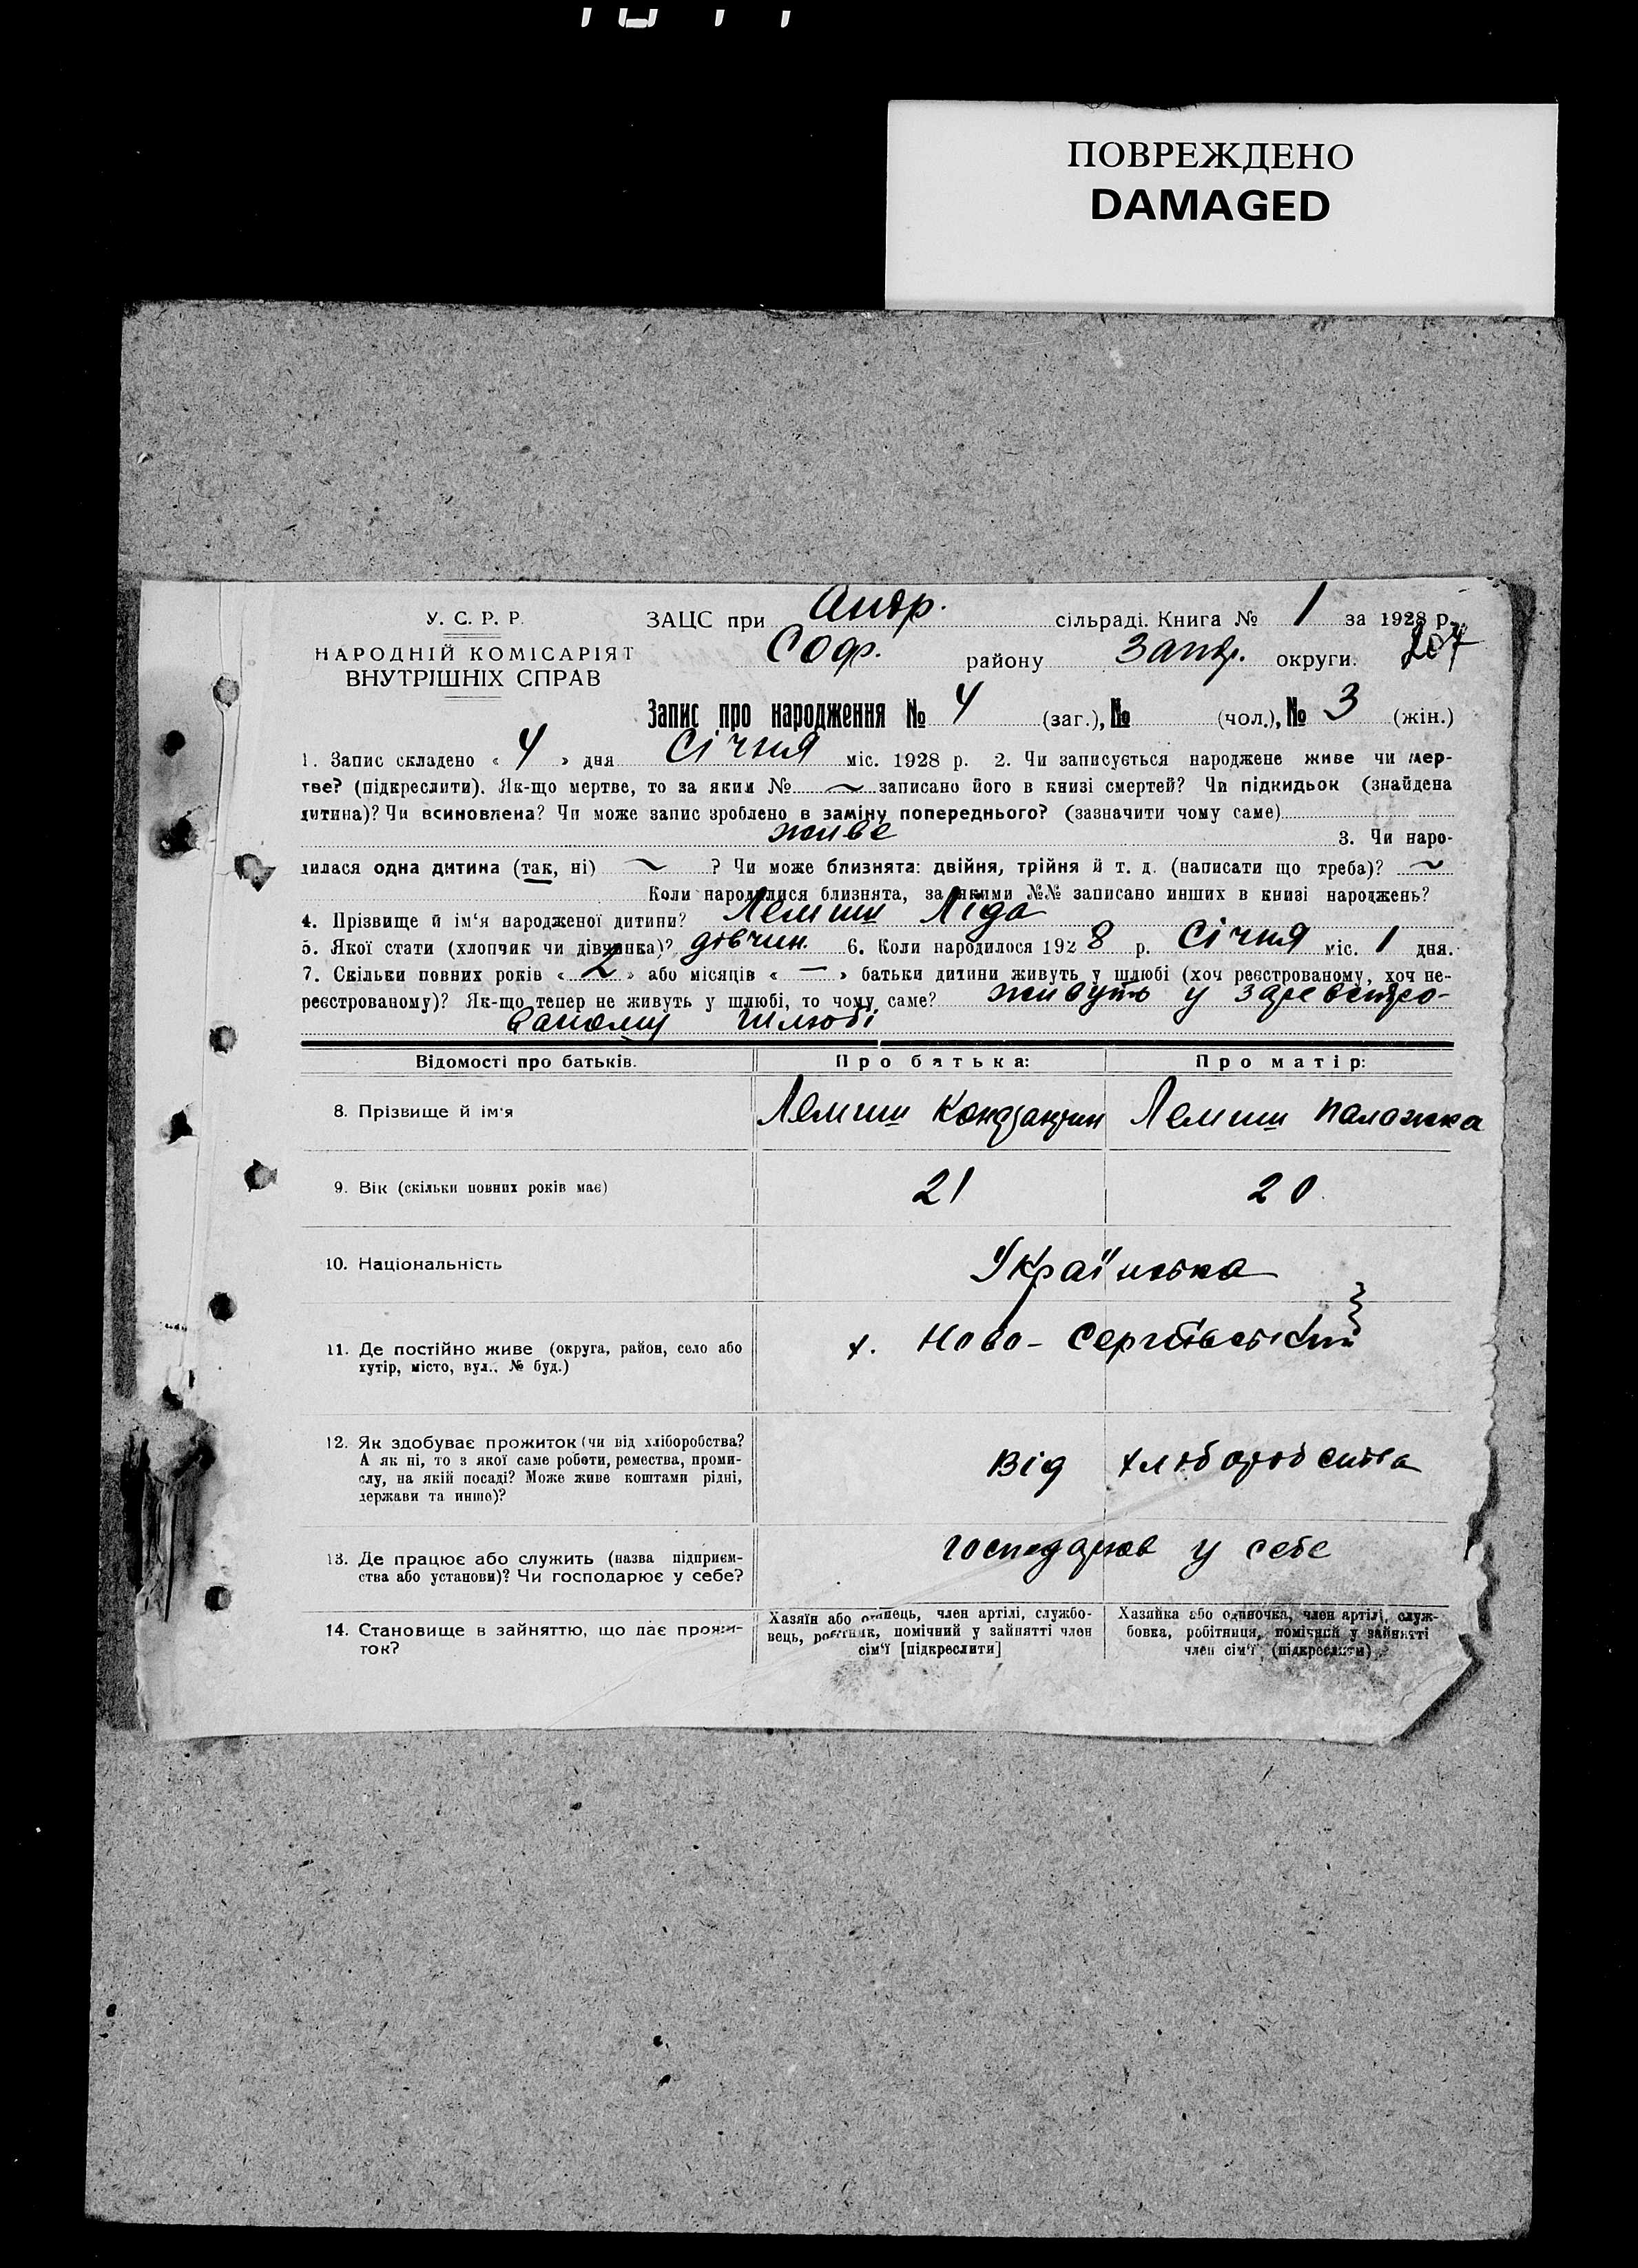 ПОВРЕЖДЕНО
DAMAGED
У. С. Р. Р.
НАРОДНІЙ КОМІСАРІЯТ
ВНУТРІШНІХ СПРАВ
ЗАЦС при Андр. сільраді. Книга № 1 за 1928 р.
Соф. району Запор. округи. 207
Запис про народження № 4 (заг.), № (чол.), № 3 (жін.)
1. Запис складено « 4 » дня Січня міс. 1928 р. 2. Чи записується народжене живе чи мер-
тве? (підкреслити). Як-що мертве, то за яким № ~ записано його в книзі смертей? Чи підкидьок (знайдена
дитина)? Чи всиновлена? Чи може запис зроблено в заміну попереднього? (зазначити чому саме)
живе 3. Чи наро-
дилася одна дитина (так, ні) ~ ? Чи може близнята: двійня, трійня й т. д. (написати що треба)? ~
Коли народилися близнята, за якими №№ записано инших в книзі народжень?
4. Прізвище й ім'я народженої дитини? Лемиш Ліда
5. Якої стати (хлопчик чи дівчинка)? дівчин. 6. Коли народилося 1928 р. Січня міс. 1 дня.
7. Скільки повних років « 2 » або місяців « — » батьки дитини живуть у шлюбі (хоч реєстрованому, хоч не-
реєстрованому)? Як-що тепер не живуть у шлюбі, то чому саме? живуть у зареєстро-
ваному шлюбі
Відомості про батьків. Про батька: Про матір:
8. Прізвище й ім'я Лемиш Лемиш Паложка
9. Вік (скільки повних років має) 21 20
10. Національність Українська
11. Де постійно живе (округа, район, село або
хутір, місто, вул., № буд.) х. Ново-Сергіївський
12. Як здобуває прожиток (чи від хліборобства?
А як ні, то з якої саме роботи, ремества, проми-
слу, на якій посаді? Може живе коштами рідні,
держави та инше)? Від хліборобства
13. Де працює або служить (назва підприєм-
ства або установи)? Чи господарює у себе? господарюв у себе
14. Становище в зайняттю, що дає прожи-
ток?
Хазяїн або одинець, член артілі, службо-
вець, робітник, помічний у зайнятті член
сім'ї [підкреслити]
Хазяйка або одиночка, член артілі, служ-
бовка, робітниця, помічний у зайнятті
член сім'ї (підкреслити)